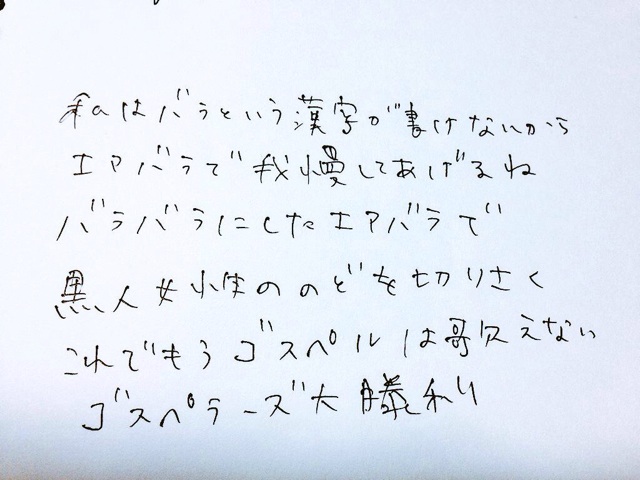 私はバラという漢字が書けないから
エアバラで我慢してあげるね
バラバラにしたエアバラで
黒人女性ののどを切りさく
これでもうゴスペルは歌えない
ゴスペラーズ大勝利